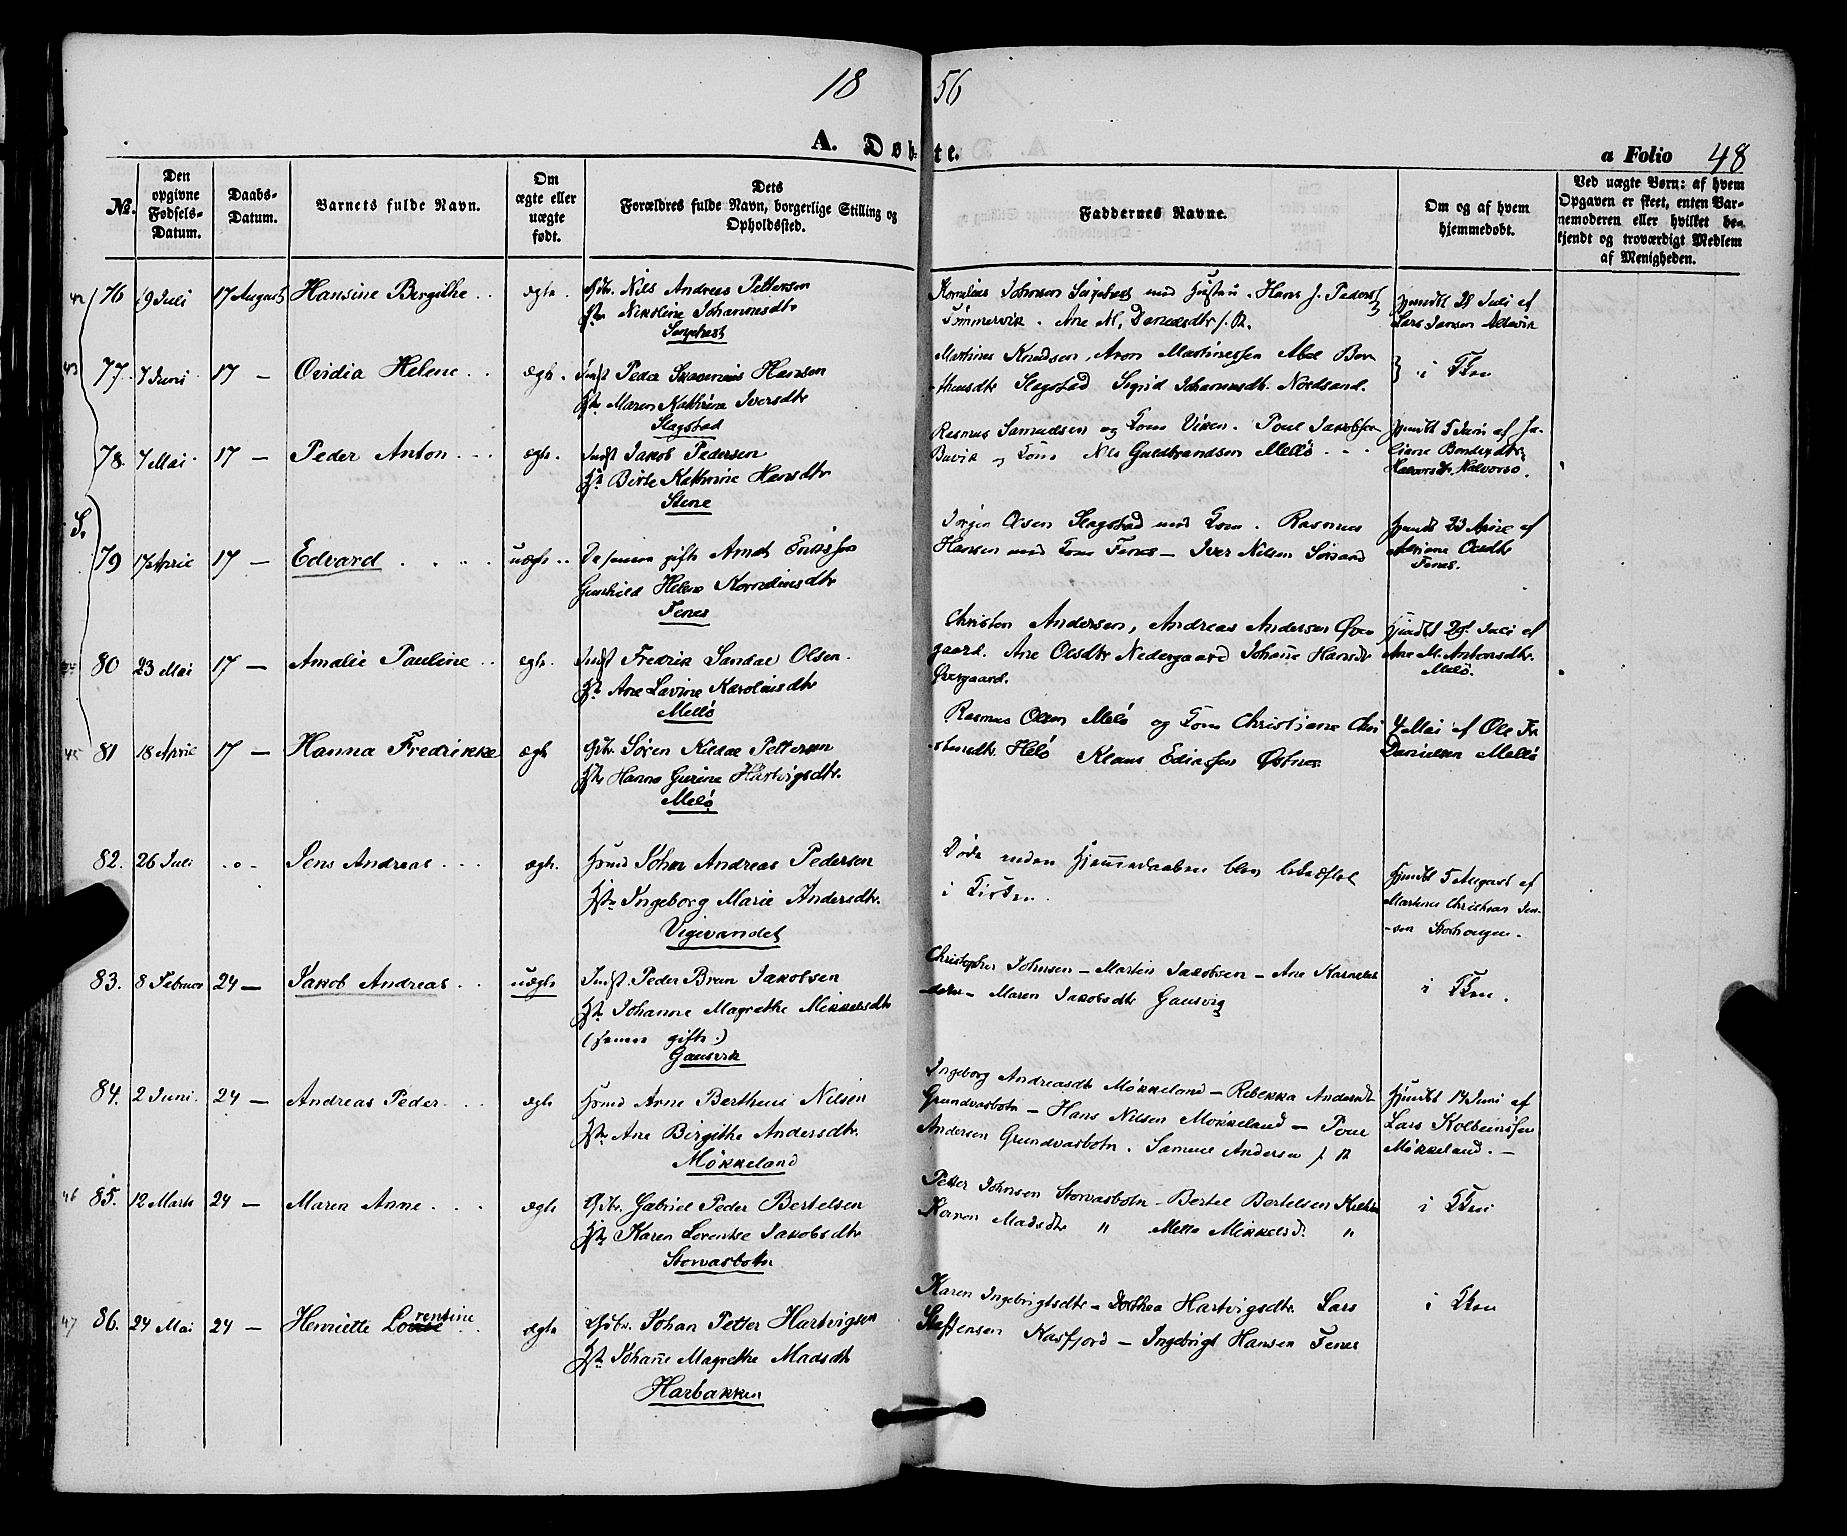 18 56
A. Døbte.
a Folio 48
№.
Den opgivne Fødsels-Datum.
Daabs-Datum.
Barnets fulde Navn.
Om ægte eller uægte født.
Dets Forældres fulde Navn, borgerlige Stilling og Opholdssted.
Faddernes Navne.
Om og af hvem hjemmedøbt.
Ved uægte Børn: af hvem Opgaven er skeet, enten Barnemoderen eller hvilket bekjendt og troværdigt Medlem af Menigheden.
42 76 19 Juli 17 August Hansine Bergithe ægte Nils Andreas Pettersen
Nikoline Johannesdtr
Johnsen med Hustru. Hans J. Peders
Tømmervik. Ane M. Danielsdtr
28 Juli af
Lars Jensen
43 77. 7 Juni 17 — Ovidia Helene ægte Indst Peder Hansen
Maren Kathrine Iversdtr
Slagstad
Martines Knudsen, Aron Martinessen Abel Ber-
thensdtr Slagstad Sigrid Johannesdtr. Nordsand.
i Kken
78. 7 Mai 17 — Peder Anton ægte Indst Jakob Pedersen
Birte Kathrine Hansdtr
Stene
Rasmus Samuelsen og Kone Viken. Poul Jakobsen
Bavik og Kone Nils Guldbrandsen Mellø
5 Juni af
S. 79 17 April 17 — Edvard uægte gifte Arndt Eriksen
Gunhild Helene Korneliusdtr
Fenes
Jørgen Olsen Slagstad med Kone. Rasmus
Hansen med Kone Fenes — Iver Nilsen Sørsand
23 April af
Fenes.
80 23 Mai 17 — Amalie Pauline ægte. Indst Fredrik Sandal Olsen.
Ane Lavine Karolinsdtr
Mellø
Christen Andersen, Andreas Andersen Øver
gaard. Ane Olsdtr Nedergaard Johanne Hansdr
Øvergaard.
Juli af
Ane M. Antonsdtr.
Melø.
45 81 18 April 17 — Hanna Fredrikke ægte Søren Kildal Pettersen
Hanna Gurine Hartvigsdtr.
Melø
Rasmus Olsen Melø og Kone Christiane Chri
stensdtr Melø Klaus Ediassen Østnes
4 Mai af Ole Fr.
Danielsen Mellø
82. 26 Juli -o- Jens Andreas ægte. Johan Andreas Pedersen
Ingeborg Marie Andersdtr.
Vigevandet
Døde inden Hjemmedaaben blev bekræftet
i Kirken.
5 August af
Martines Christian Jen-
sen Storhaugen.
83. 8 Februar 24 — Jakob Andreas uægte Indst. Peder Brun Jakobsen
Johanne Magrethe Mikkelsdtr
(senere gifte.)
Gausvik
Christopher Johnsen — Martin Jakobsen — Ane Karnelius
datter — Maren Jakobsdtr Gausvig
i Kken.
84. 2 Juni 24 — Andreas Peder ægte Arne Bertheus Nilsen
Ane Birgithe Andersdtr.
Møkkeland
Ingeborg Andreasdtr Møkkeland — Rebekka Andersdtr
Grundvasbotn — Hans Nilsen Møkkeland — Poul
Andersen Grundvasbotn. Samuel Andersen
14 Juni af
Lars Kolbeinsen
Møkkeland. —
46 85. 12 Marts 24 — Maren Anne ægte Gabriel Peder Bertelsen
Karen Lorentse Jakobsdtr
Storvasbotn
Petter Johnsen Storvasbotn — Bertel Bertelsen
Karen Madsdtr " Mette Mikkelsd. "
i Kken
47 86. 24 Mai 24 — Henriette Lorentine ægte Johan Petter Hartvigsen
Johanne Magrethe Madsdtr
Harbakken
Karen Ingebrigtsdtr — Dorthea Hartvigsdtr. Lars
Steffensen Kasfjord — Ingebrigt Hansen Fenes
i Kken